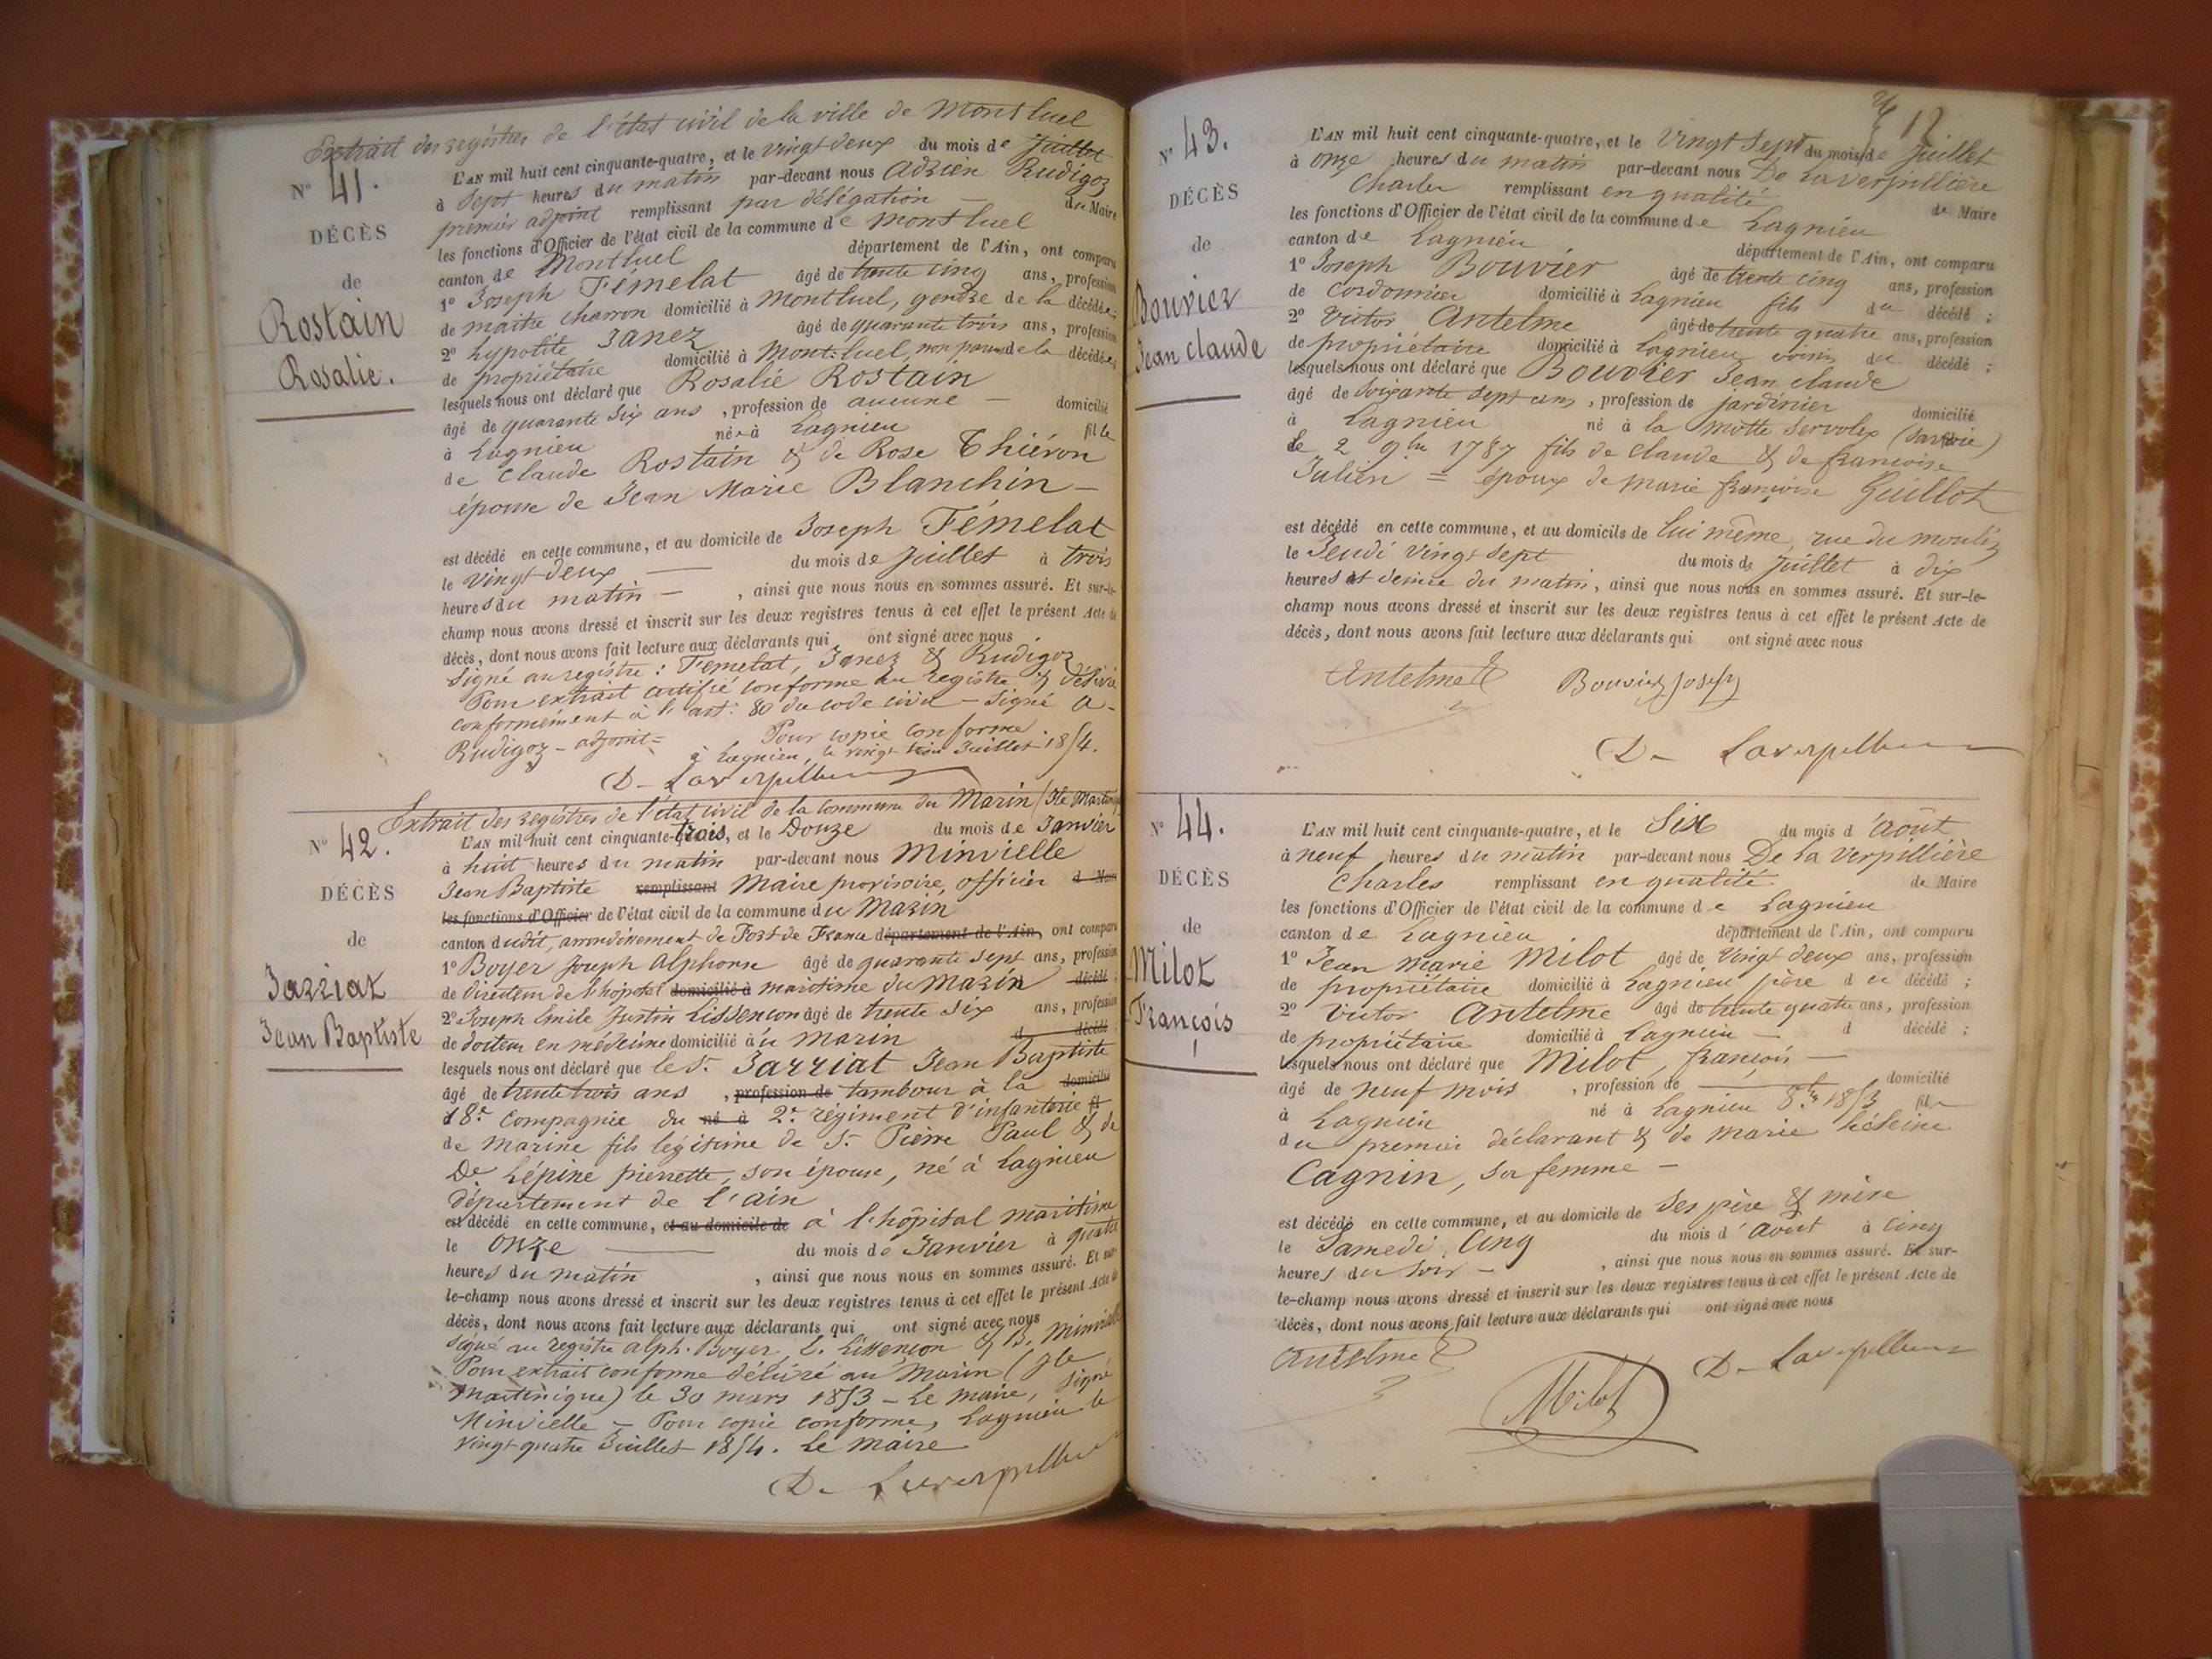 Extrait des registres de l'état civil de la ville de Montluel
N° 41.
DÉCÈS
de
Rostain
Rosalie.
L'AN mil huit cent cinquante-quatre, et le vingt deux du mois de Juillet
à Sept heures du matin par-devant nous Adrien Rudigoz
premier adjoint remplissant par délégation — du Maire
les fonctions d'Officier de l'état civil de la commune de Montluel
canton de Montluel département de l'Ain, ont comparu
1° Joseph Fémelat âgé de trente cinq ans, profession
de maitre charron domicilié à Montluel, gendre de la décédée;
2° hypolite Janez âgé de quarante trois ans, profession
de propriétaire domicilié à Mont-luel, non parent de la décédée;
lesquels nous ont déclaré que Rosalie Rostain
âgé de quarante six ans, profession de aucune — domicilié
à Lagnieu née à Lagnieu fille
de Claude Rostain & de Rose Thiéron
épouse de Jean Marie Blanchin —
est décédé en cette commune, et au domicile de Joseph Fémelat
le vingt-deux — du mois de Juillet à trois
heures du matin — , ainsi que nous nous en sommes assuré. Et sur-le-
champ nous avons dressé et inscrit sur les deux registres tenus à cet effet le présent Acte de
décès, dont nous avons fait lecture aux déclarants qui ont signé avec nous
Signé au registre : Femelat, Janez & Rudigoz
Pour extrait certifié conforme au registre & délivré
conformément à l'art: 80 du code civil — Signé A-
Rudigoz - adjoint =
Pour copie conforme
à Lagnieu, le vingt trois Juillet 1854.
D- Laverpillière
Extrait des registres de l'état civil de la commune du Marin (Ile Martinique
N° 42.
DÉCÈS
de
Jarriat
Jean Baptiste
L'AN mil huit cent cinquante-trois, et le Douze du mois de Janvier
à huit heures du matin par-devant nous Minvielle
Jean Baptiste remplissant Maire provisoire, officier d Maire
les fonctions d'Officier de l'état civil de la commune du Marin
canton dudit, arrondissement de Fort de France département de l'Ain, ont comparu
1° Boyer Joseph Alphonse âgé de quarante sept ans, profession
de Directeur de l'hôpital domicilié à maritime du Marin décédé ;
2° Joseph Emile Justin Lissençon âgé de trente six ans, profession
de docteur en médecine domicilié à u marin d décédé
lesquels nous ont déclaré que le Sr. Jarriat Jean Baptiste
âgé de trente trois ans , profession de tambour à la domicilié
à 18e compagnie du né à 2e régiment d'infanterie fil
de marine fils légitime de Sr Pierre Paul & de
De Lépine pierrette, son épouse, né à Lagnieu
département de l'ain
est décédé en cette commune, et au domicile de à l'hôpital maritime
le onze — du mois de Janvier à quatre
heures du matin , ainsi que nous nous en sommes assuré. Et sur-
le-champ nous avons dressé et inscrit sur les deux registres tenus à cet effet le présent Acte de
décès, dont nous avons fait lecture aux déclarants qui ont signé avec nous
Signé au registre alph. Boyer, E. Lissençon & B. Minvielle
Pour extrait conforme délivré au Marin (Ile
Martinique) le 30 mars 1853 - Le maire, Signé
Minvielle — Pour copie conforme, Lagnieu le
vingt quatre Juillet 1854. Le Maire
D- Laverpillière
12
N° 43.
DÉCÈS
de
Bouvier
Jean claude
L'AN mil huit cent cinquante-quatre, et le Vingt Sept du mois de Juillet
à onze heures du matin par-devant nous De Laverpillière
Charles remplissant en qualité de Maire
les fonctions d'Officier de l'état civil de la commune de Lagnieu
canton de Lagnieu département de l'Ain, ont comparu
1° Joseph Bouvier âgé de trente cinq ans, profession
de cordonnier domicilié à Lagnieu fils du décédé ;
2° Victor Antelme âgé de trente quatre ans, profession
de propriétaire domicilié à Lagnieu voisin du décédé ;
lesquels nous ont déclaré que Bouvier Jean claude
âgé de Soixante sept ans , profession de jardinier domicilié
à Lagnieu né à la Motte Servolex (Savoie)
le 2 9bre 1787 fils de Claude & de françoise
Julien = époux de marie françoise Guillot
est décédé en cette commune, et au domicile de lui même, rue du moulin
le Jeudi vingt sept du mois de Juillet à dix
heures et demie du matin , ainsi que nous nous en sommes assuré. Et sur-le-
champ nous avons dressé et inscrit sur les deux registres tenus à cet effet le présent Acte de
décès, dont nous avons fait lecture aux déclarants qui ont signé avec nous
Antelme Bouvier Joseph
D- Laverpillière
N° 44.
DÉCÈS
de
Milot
François
L'AN mil huit cent cinquante-quatre, et le Six du mois d'Août
à neuf heures du matin par-devant nous De La Verpillière
Charles remplissant en qualité de Maire
les fonctions d'Officier de l'état civil de la commune de Lagnieu
canton de Lagnieu département de l'Ain, ont comparu
1° Jean Marie Milot âgé de Vingt deux ans, profession
de propriétaire domicilié à Lagnieu père du décédé ;
2° Victor Antelme âgé de trente quatre ans, profession
de propriétaire domicilié à Lagnieu — d décédé ;
lesquels nous ont déclaré que Milot, françois —
âgé de neuf mois , profession de — domicilié
à Lagnieu né à Lagnieu 8bre 1853 fils
du premier déclarant & de Marie
Cagnin, sa femme —
est décédé en cette commune, et au domicile de Ses père & mère
le Samedi, Cinq du mois d'août à cinq
heures du soir — , ainsi que nous nous en sommes assuré. Et sur-
le-champ nous avons dressé et inscrit sur les deux registres tenus à cet effet le présent Acte de
décès, dont nous avons fait lecture aux déclarants qui ont signé avec nous
Antelme D- Laverpillière
Milot